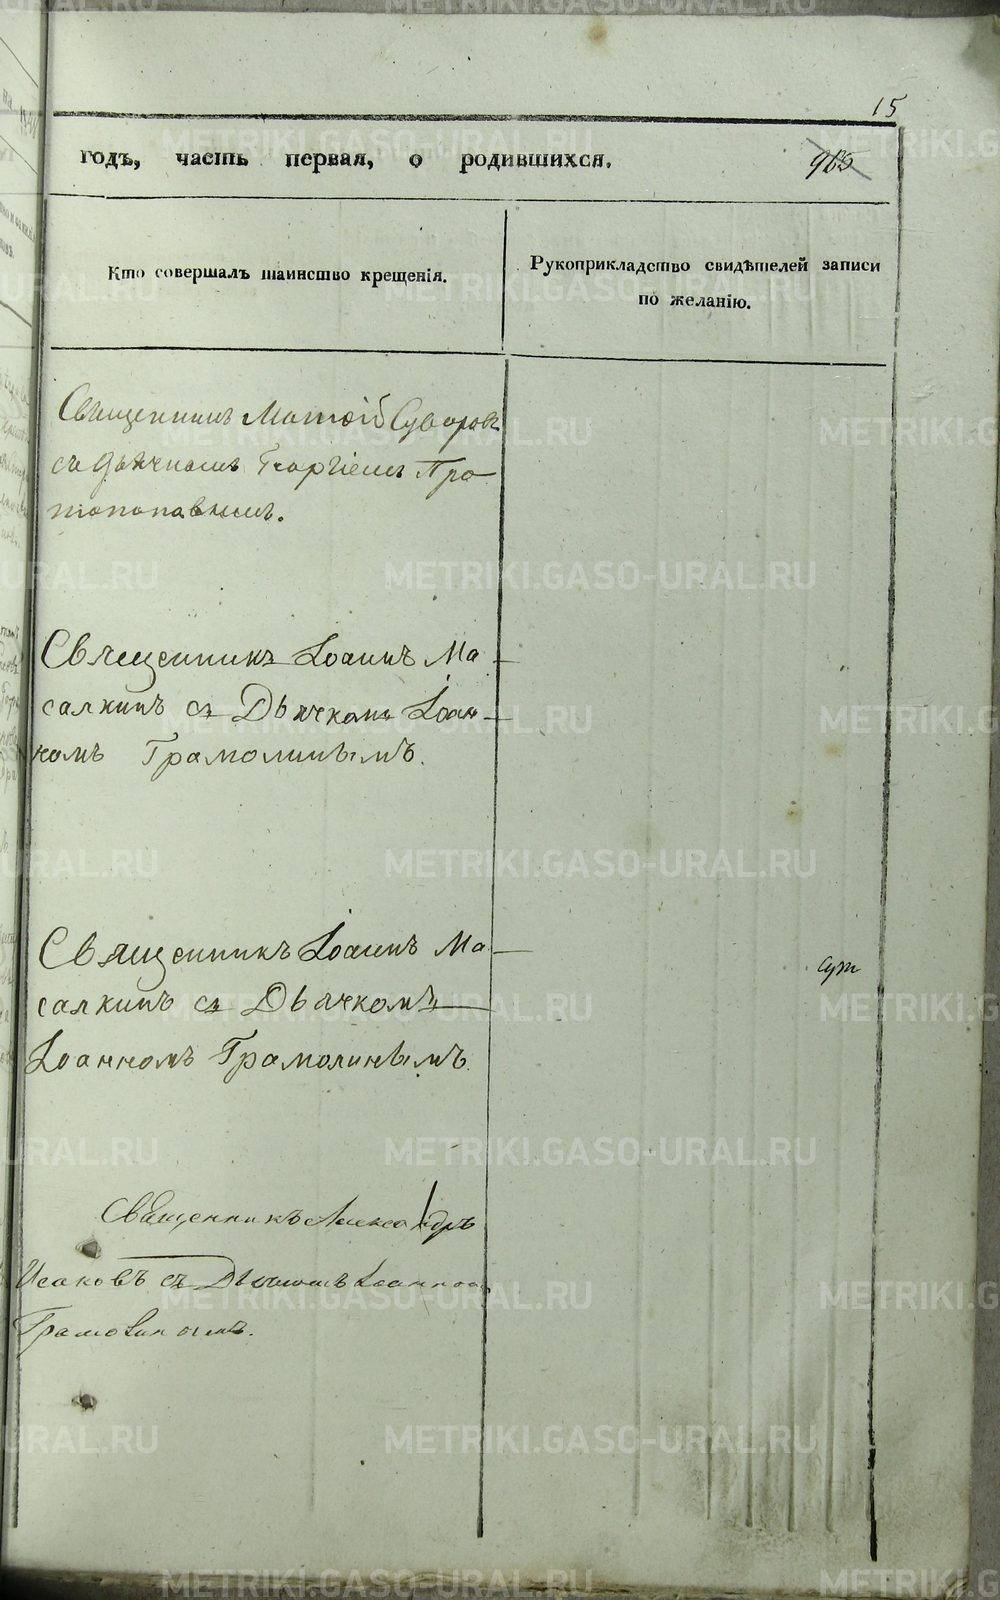 15
годъ, часть первая, о родившихся.
965
Кто совершалъ таинство крещенія.
Рукоприкладство свидѣтелей записи
по желанію.
Священникъ Матѳій Суворовъ
съ дьячкомъ Георгіемъ Про
топоповымъ.
Священникъ Іоаннъ Ма
салкинъ съ Дьячкомъ Іоан
номъ Грамолинымъ.
Священникъ Іоаннъ Ма
салкинъ съ Дьячкомъ
Іоанномъ Грамолинымъ
Священникъ Александръ
Исаковъ съ Дьячкомъ Іоанномъ
Грамолинымъ.
METRIKI.GASO-URAL.RU